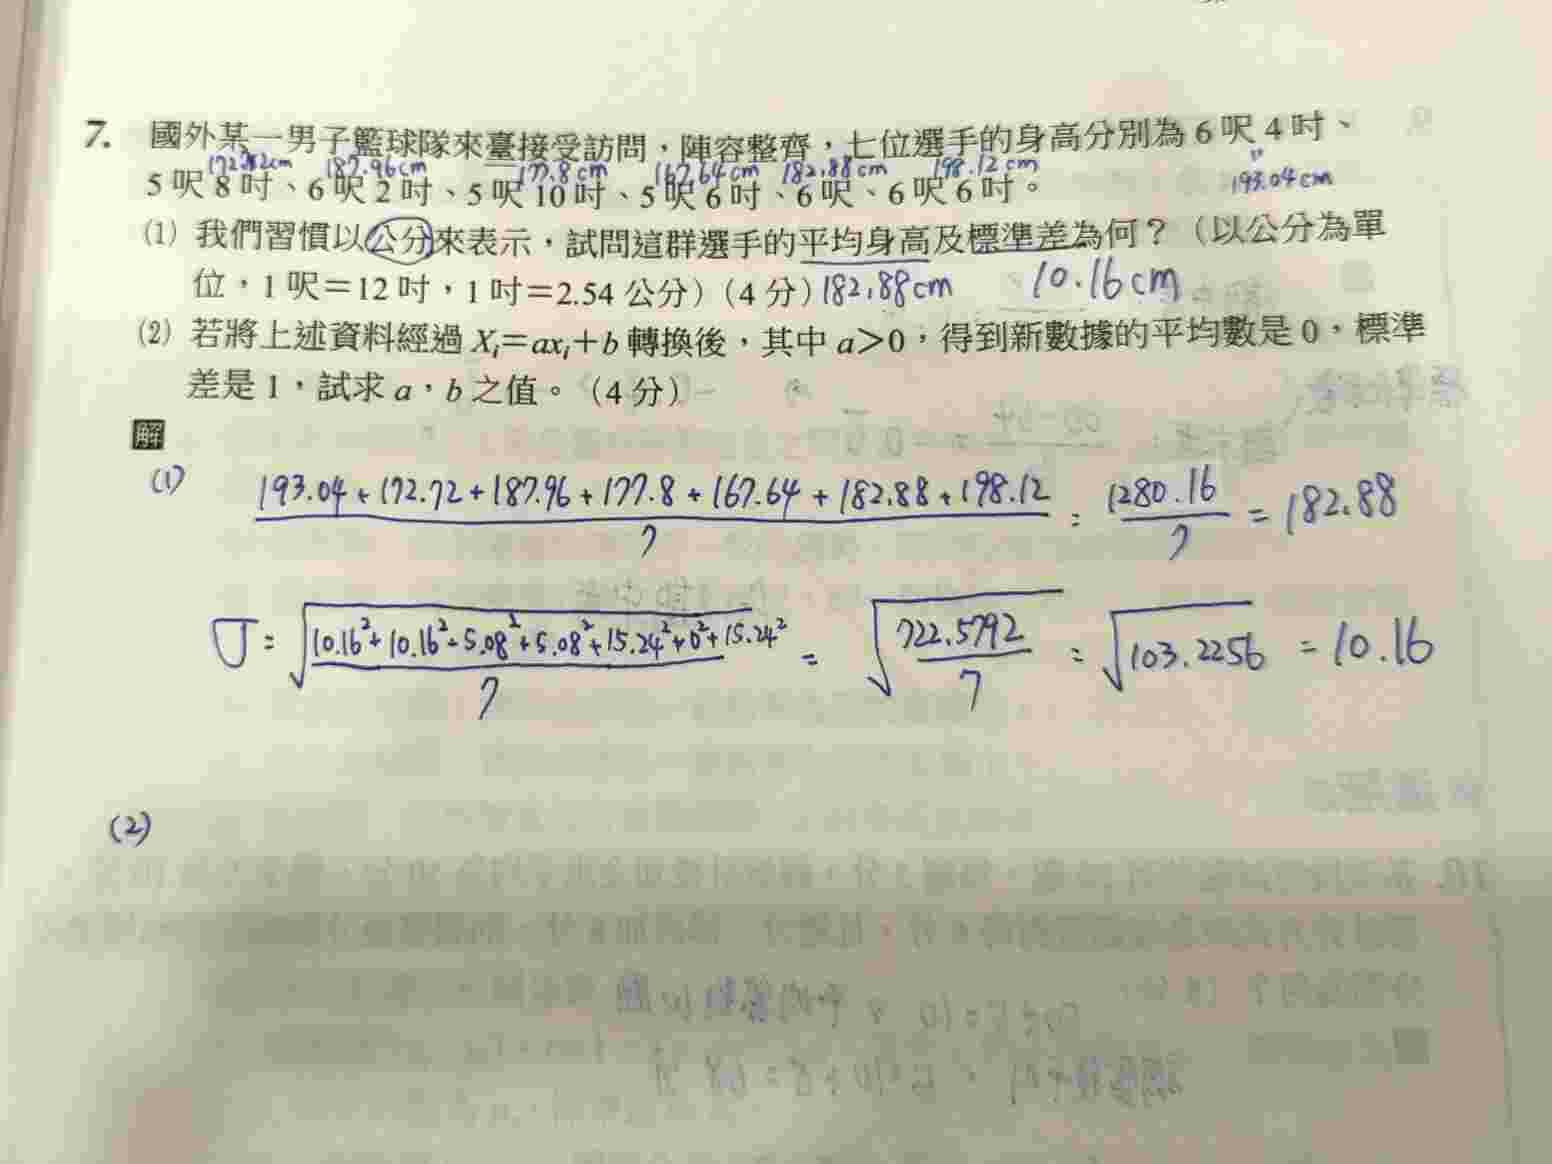 7. 國外某一男子籃球隊來臺接受訪問，陣容整齊，七位選手的身高分別為 6 呎 4 吋、
172.72cm 187.96cm 177.8cm 167.64cm 182.88cm 198.12cm 193.04cm
5 呎 8 吋、6 呎 2 吋、5 呎 10 吋、5 呎 6 吋、6 呎、6 呎 6 吋。
(1) 我們習慣以公分來表示，試問這群選手的平均身高及標準差為何？（以公分為單
位，1 呎＝12 吋，1 吋＝2.54 公分）（4 分）182.88cm 10.16cm
(2) 若將上述資料經過 Xᵢ=axᵢ+b 轉換後，其中 a>0，得到新數據的平均數是 0，標準
差是 1，試求 a，b 之值。（4 分）
解
(1) (193.04+172.72+187.96+177.8+167.64+182.88+198.12)/7 = 1280.16/7 = 182.88
σ = √((10.16²+10.16²+5.08²+5.08²+15.24²+0²+15.24²)/7) = √(722.5792/7) = √103.2256 = 10.16
(2)